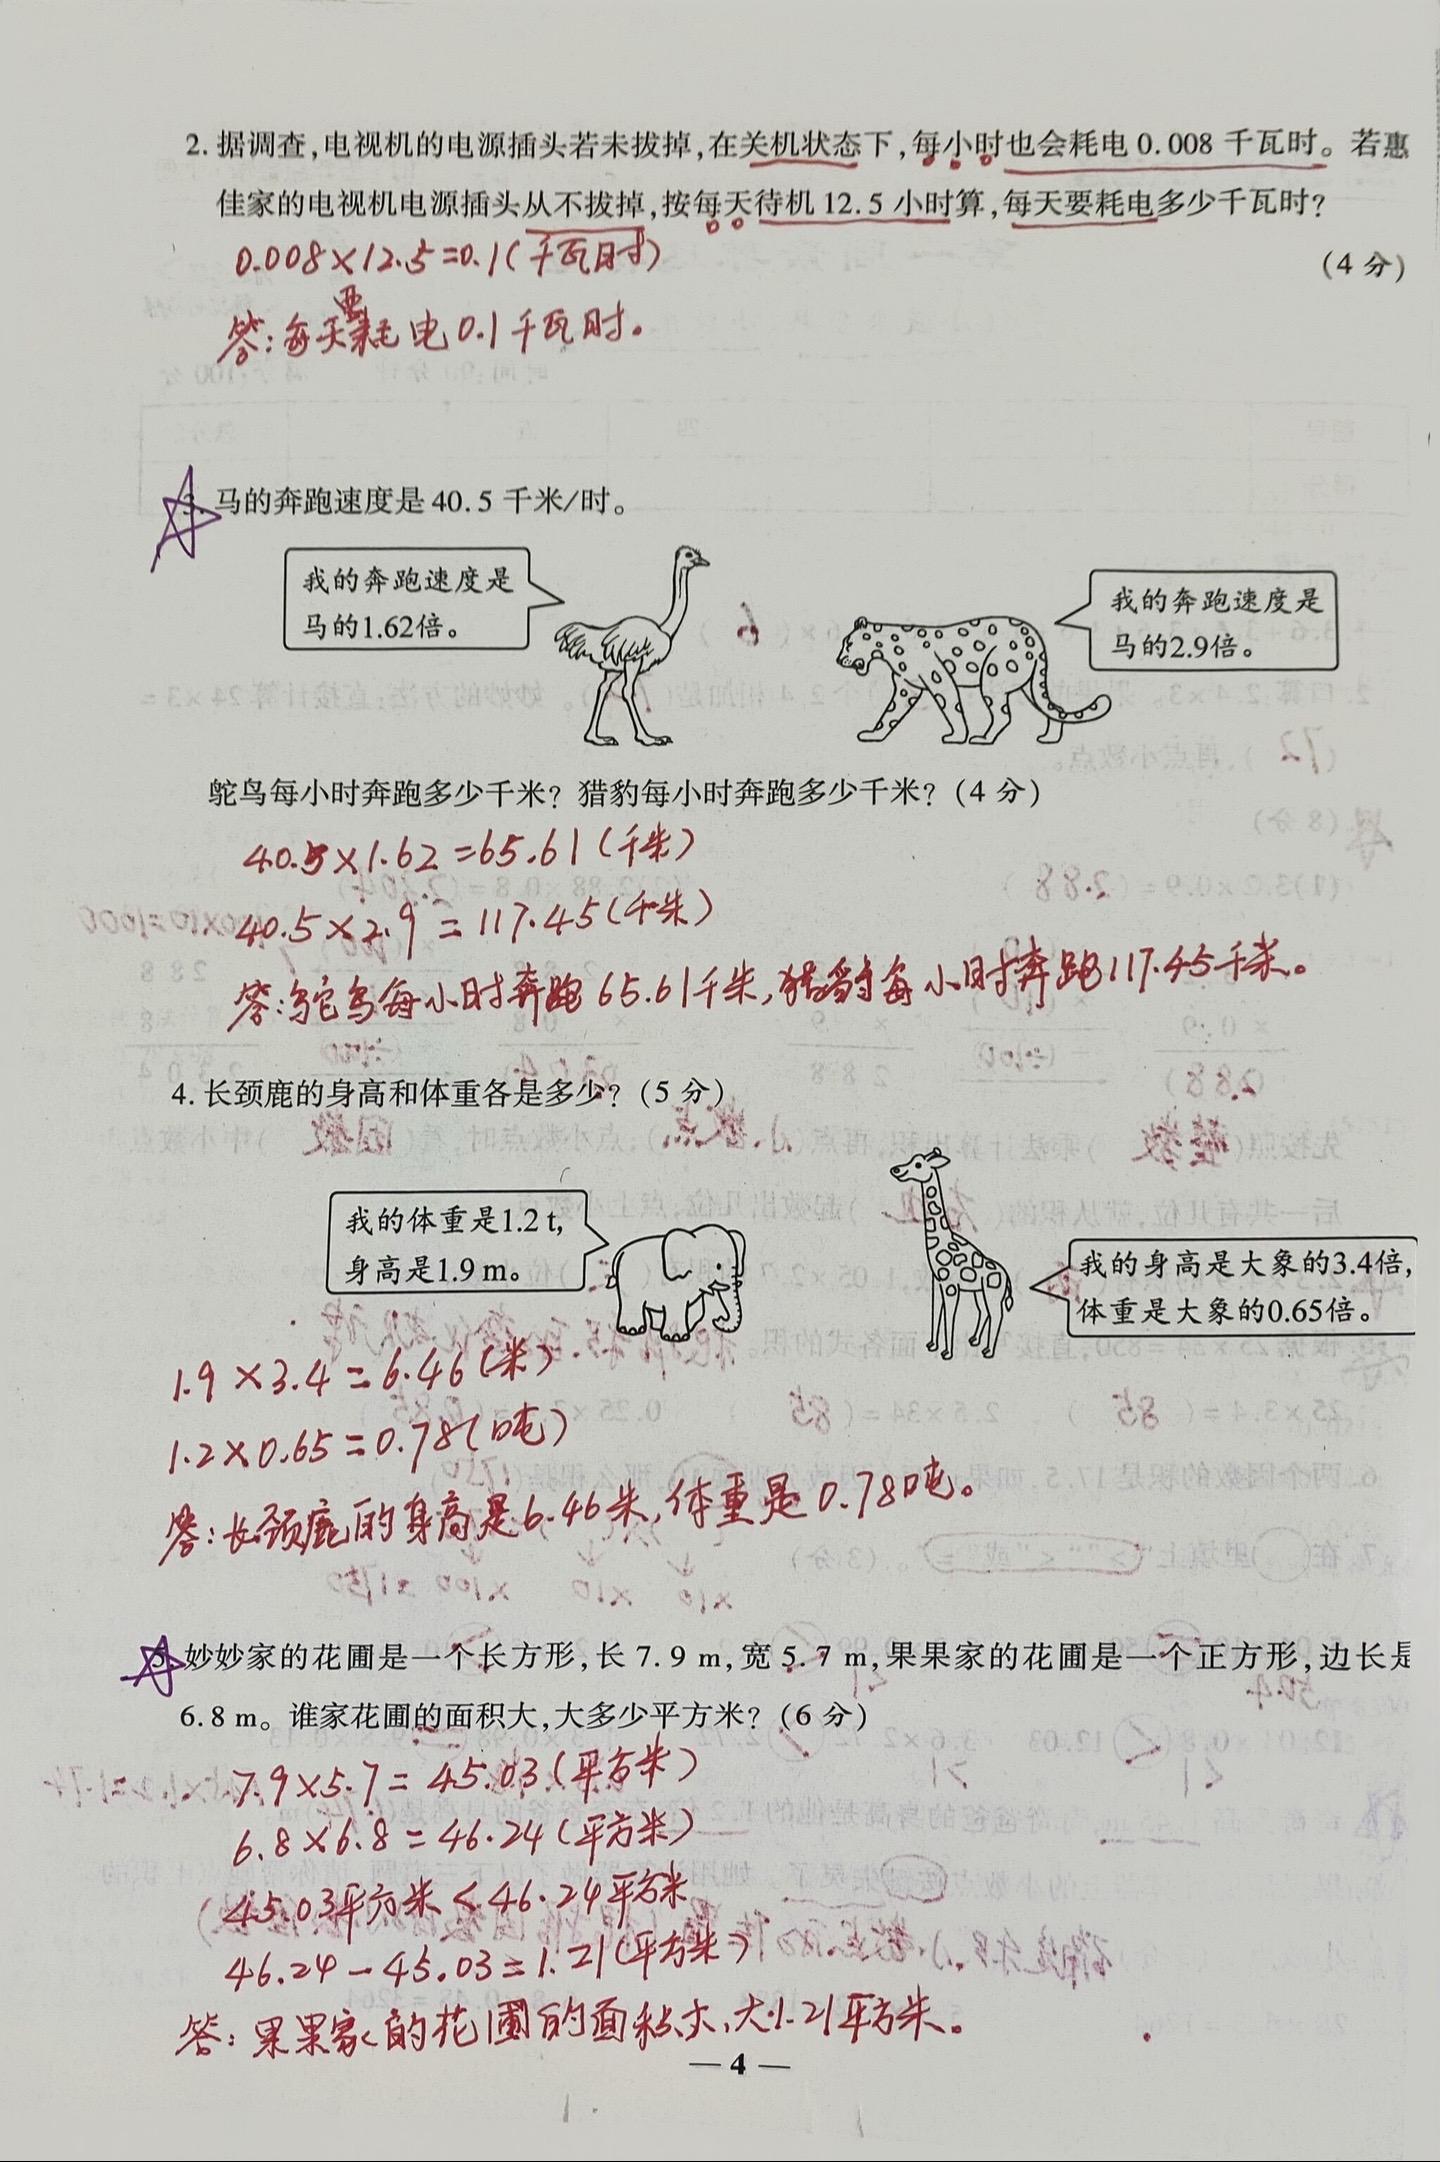 2. 据调查,电视机的电源插头若未拔掉,在关机状态下,每小时也会耗电 0.008 千瓦时。若惠
佳家的电视机电源插头从不拔掉,按每天待机 12.5 小时算,每天要耗电多少千瓦时?
(4 分)
0.008×12.5=0.1(千瓦时)
答:每天要耗电0.1千瓦时。
3. 马的奔跑速度是 40.5 千米/时。
我的奔跑速度是
马的1.62倍。
我的奔跑速度是
马的2.9倍。
鸵鸟每小时奔跑多少千米? 猎豹每小时奔跑多少千米? (4 分)
40.5×1.62=65.61(千米)
40.5×2.9=117.45(千米)
答:鸵鸟每小时奔跑65.61千米,猎豹每小时奔跑117.45千米。
4. 长颈鹿的身高和体重各是多少? (5 分)
我的体重是1.2 t,
身高是1.9 m。
我的身高是大象的3.4倍,
体重是大象的0.65倍。
1.9×3.4=6.46(米)
1.2×0.65=0.78(吨)
答:长颈鹿的身高是6.46米,体重是0.78吨。
5. 妙妙家的花圃是一个长方形,长 7.9 m,宽 5.7 m,果果家的花圃是一个正方形,边长是
6.8 m。谁家花圃的面积大,大多少平方米? (6 分)
7.9×5.7=45.03(平方米)
6.8×6.8=46.24(平方米)
45.03平方米<46.24平方米
46.24-45.03=1.21(平方米)
答:果果家的花圃的面积大,大1.21平方米。
— 4 —